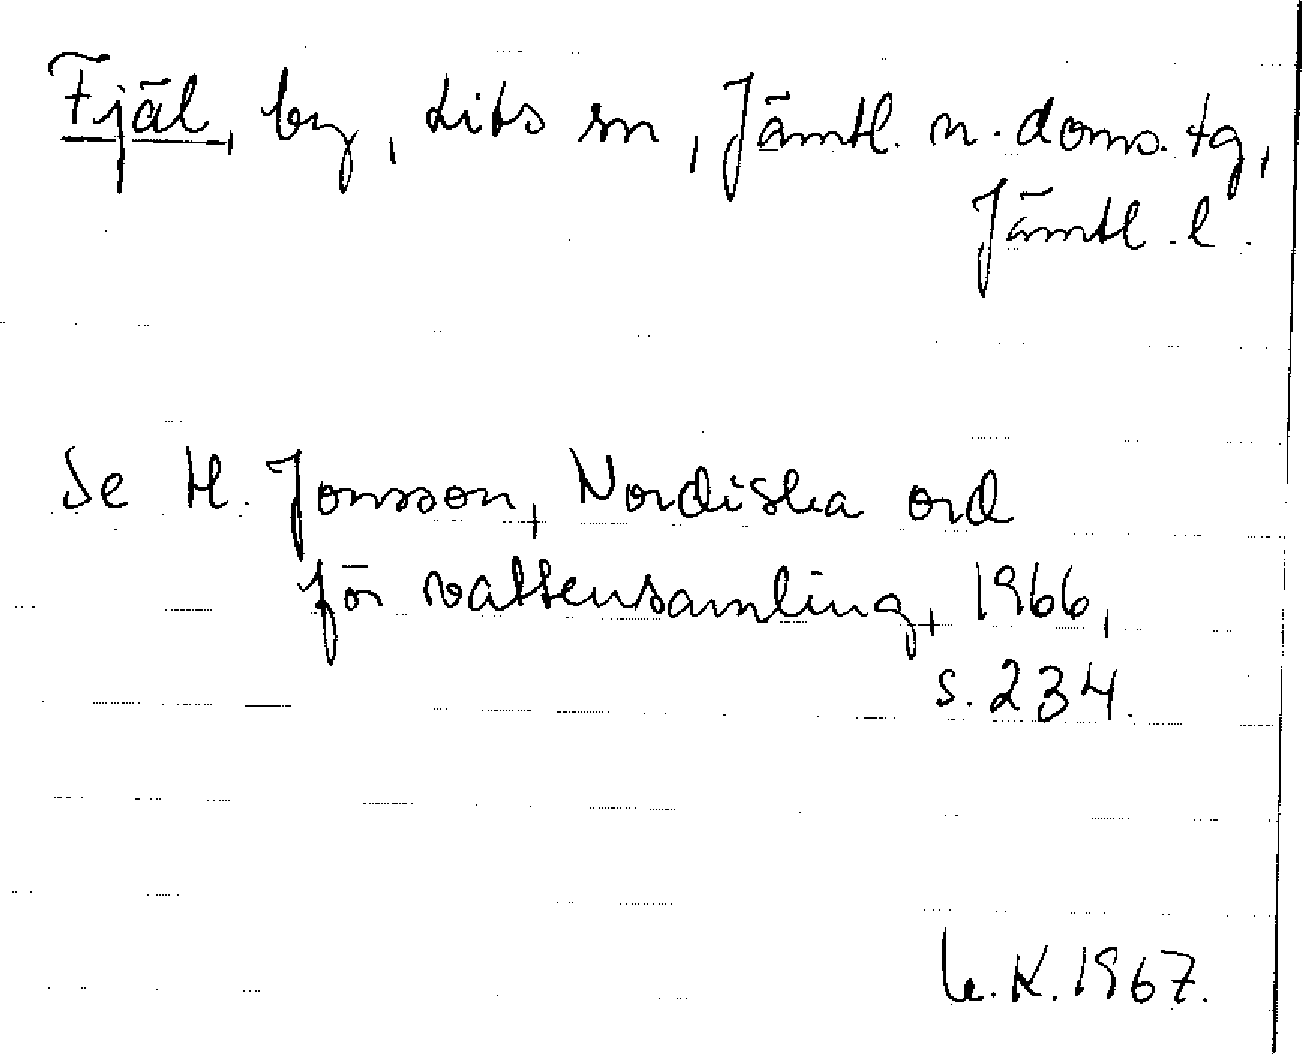 Fjäl, by, Lits sn, Jämtl. n. doms. tg,
Jämtl. l.
Se H. Jonsson, Nordiska ord
för vattensamling, 1966,
s. 234.
K. 1967.